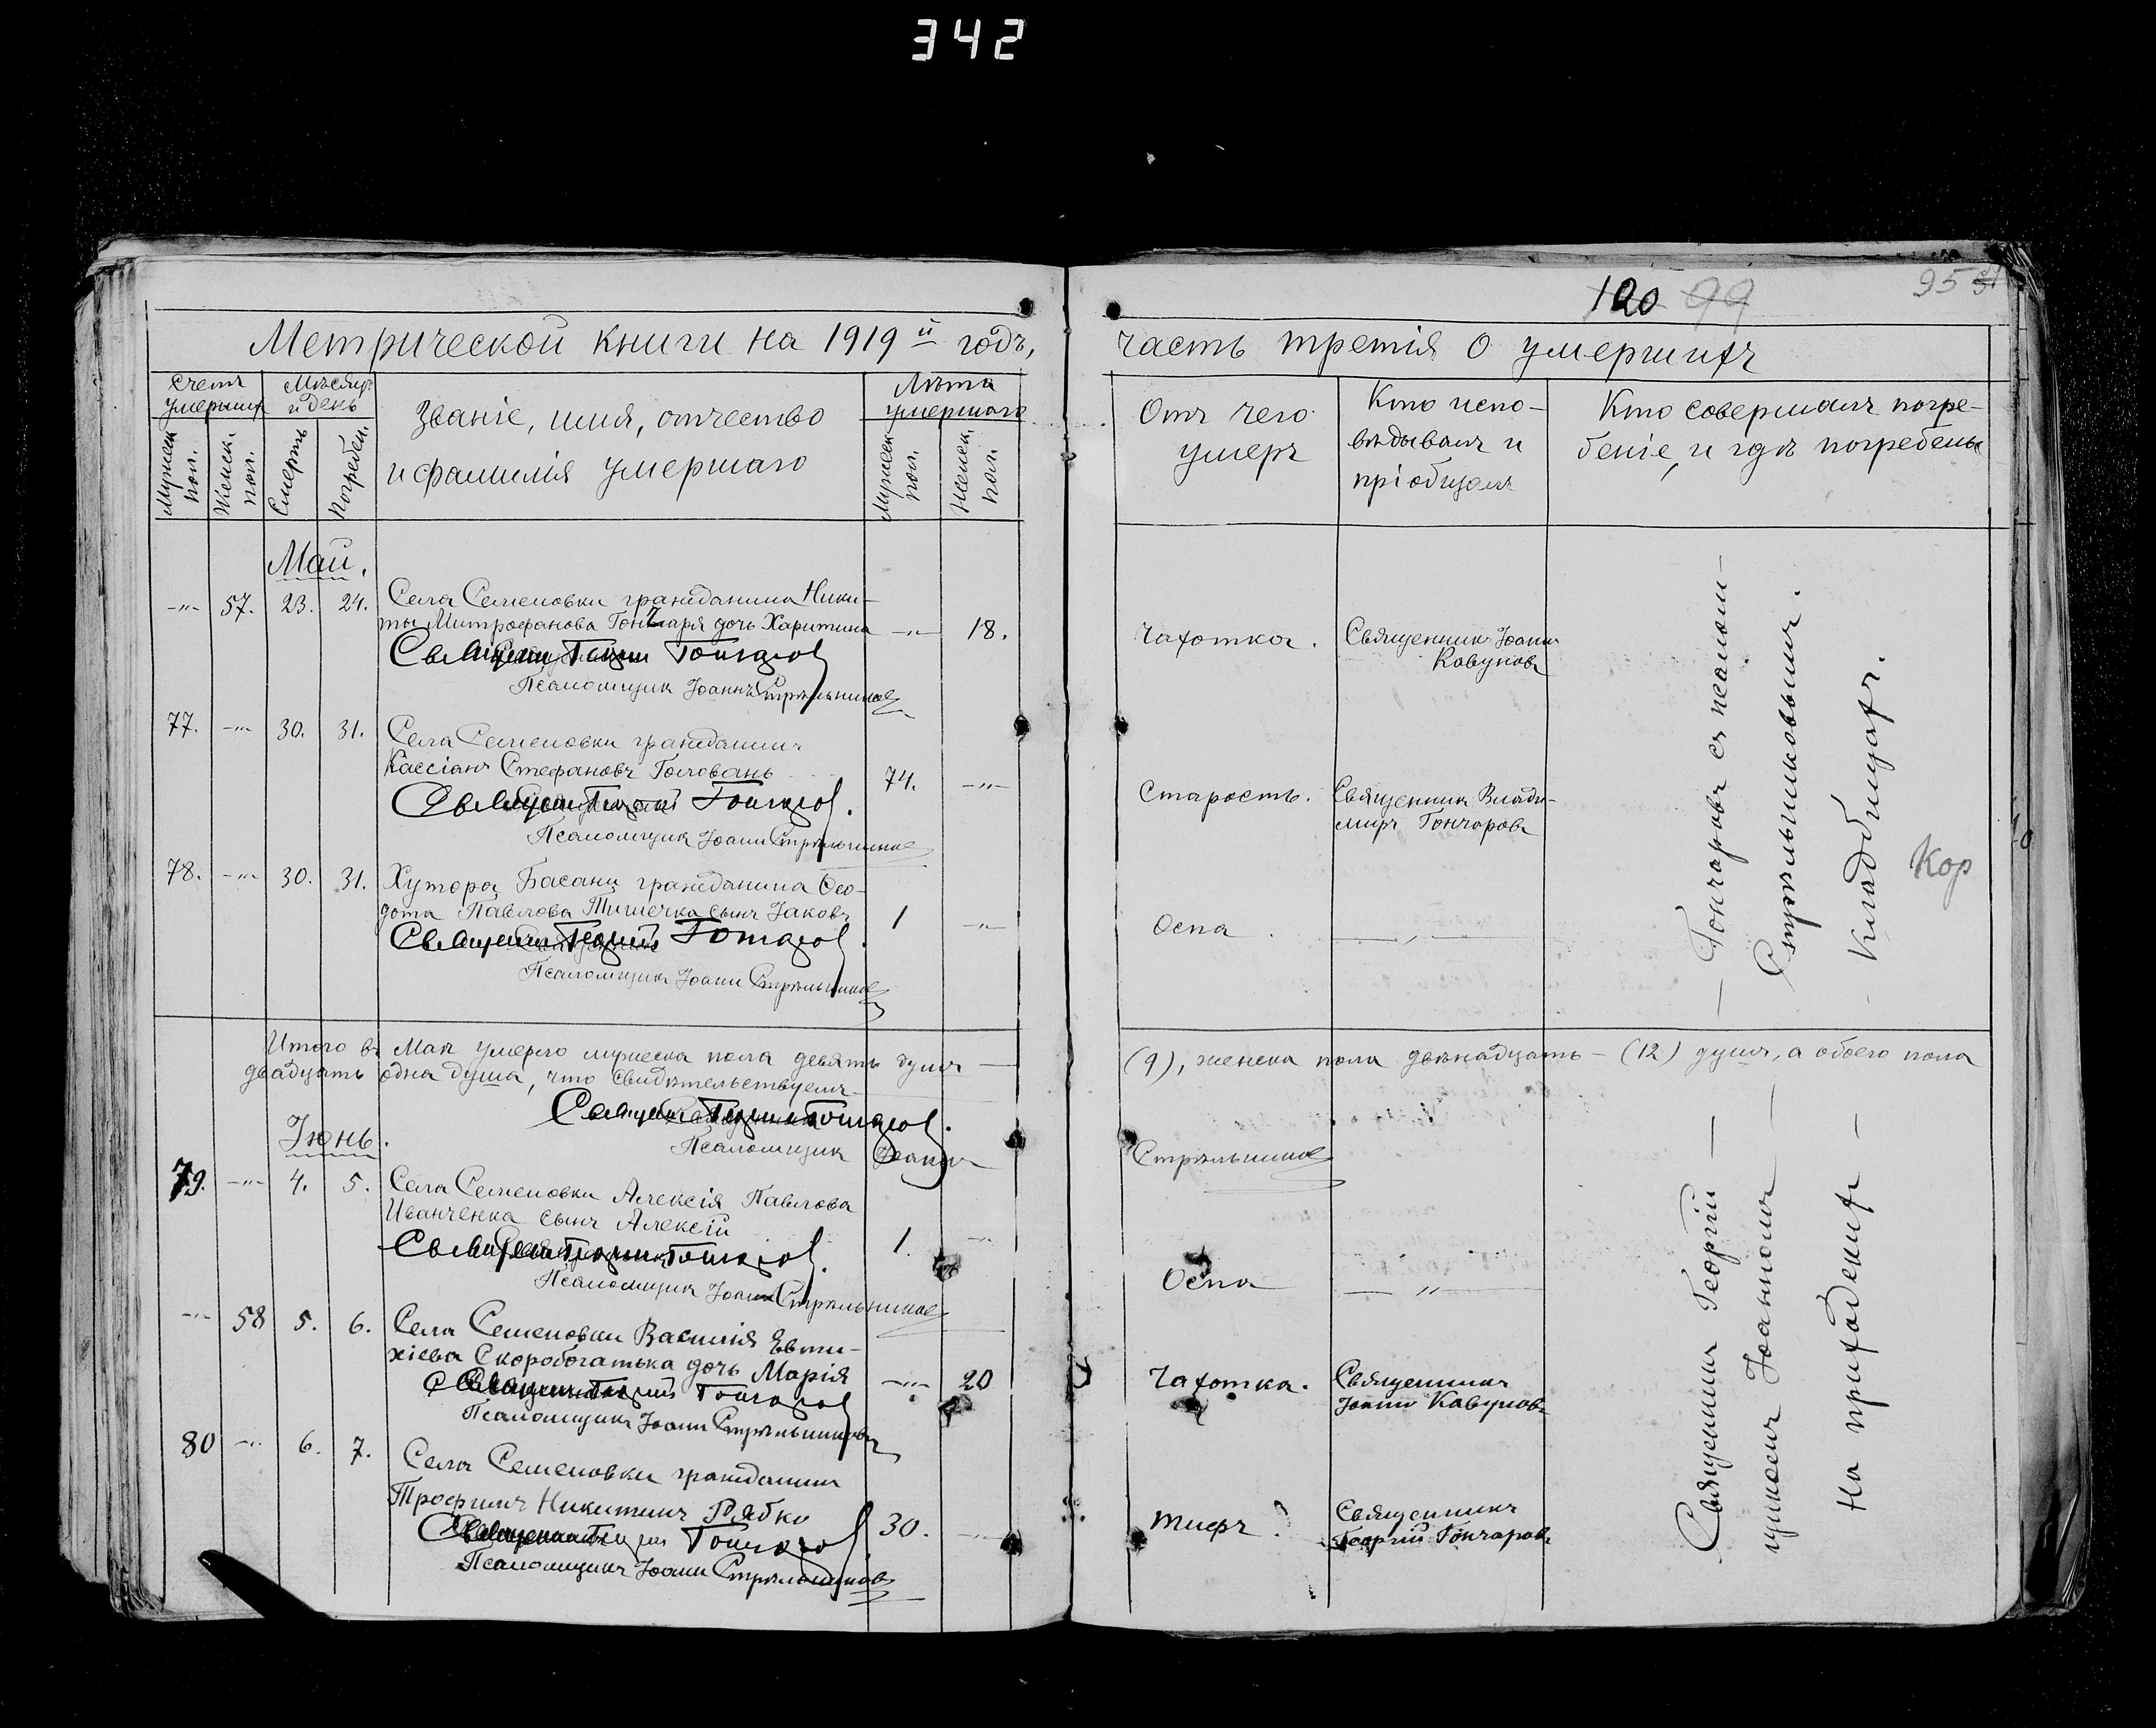 342
120 99
95
Метрической книги на 1919й годъ,
часть третія о умершихъ
Счетъ умершихъ
Мужеск. пол.
Женск. пол.
Мѣсяцъ и день
Смерть
Погребен.
Званіе, имя, отчество
и фамилія умершаго
Лѣта умершаго
Мужеск. пол.
Женск. пол.
Отъ чего
умеръ
Кто испо-
вѣдывалъ и
пріобщалъ
Кто совершалъ погре-
беніе, и гдѣ погребены
Май.
-"- 57. 23. 24. Села Семеновки гражданина Ники-
ты Митрофанова Гончаря дочь Харитина -"- 18. Чахотка. Священникъ Іоаннъ
Кавуновъ
Священникъ Георгій Гончаровъ
Псаломщикъ Іоаннъ Стрѣльниковъ
77. -"- 30. 31. Села Семеновки гражданинъ
Кассіанъ Стефановъ Головань 74. -"- Старость. Священникъ Влади-
миръ Гончаровъ
Священникъ Георгій Гончаровъ.
Псаломщикъ Іоаннъ Стрѣльниковъ
78. -"- 30. 31. Хутора Басани гражданина Ѳео-
дота Павлова Тимечка сынъ Іаковъ 1 -"- Оспа. — " —
Священникъ Георгій Гончаровъ.
Псаломщикъ Іоаннъ Стрѣльниковъ
— Гончаровъ съ псалом-
Стрѣльниковымъ.
- Кладбищахъ.
Кор
Итого въ Маѣ умерло мужеска пола девять душъ — (9), женска пола двѣнадцать — (12) душъ, а обоего пола
двадцать одна душа, что свидѣтельствуемъ
Священникъ Георгій Гончаровъ.
Псаломщикъ Іоаннъ Стрѣльниковъ
Іюнь.
79. -"- 4. 5. Села Семеновки Алексія Павлова
Иванченка сынъ Алексій 1. -"- Оспа — " —
Священникъ Георгій Гончаровъ.
Псаломщикъ Іоаннъ Стрѣльниковъ
-"- 58 5. 6. Села Семеновки Василія Евти-
хіева Скоробогатька дочь Марія -"- 20 Чахотка. Священникъ
Іоаннъ Кавуновъ
Священникъ Георгій Гончаровъ
Псаломщикъ Іоаннъ Стрѣльниковъ
80 -"- 6. 7. Села Семеновки гражданинъ
Трофимъ Никитинъ Рябко 30. -"- Тифъ. Священникъ
Георгій Гончаровъ
Священникъ Георгій Гончаровъ
Псаломщикъ Іоаннъ Стрѣльниковъ
Священникъ Георгій —
щикомъ Іоанномъ —
На приходскихъ —